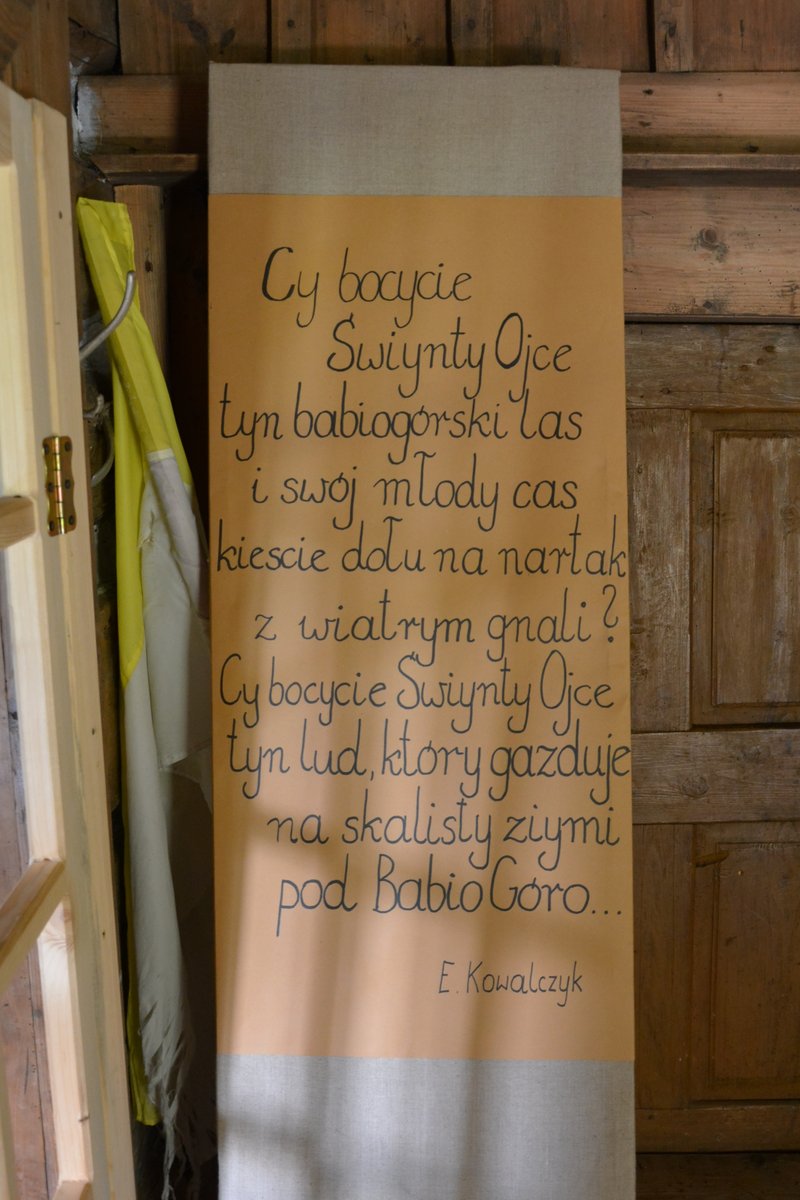 Cy bocycie
Świynty Ojce
tyn babiogórski las
i swój młody cas
kiescie dołu na nartak
z wiatrym gnali?
Cy bocycie Świynty Ojce
tyn lud, który gazduje
na skalisty ziymi
pod Babio Góro...
E. Kowalczyk